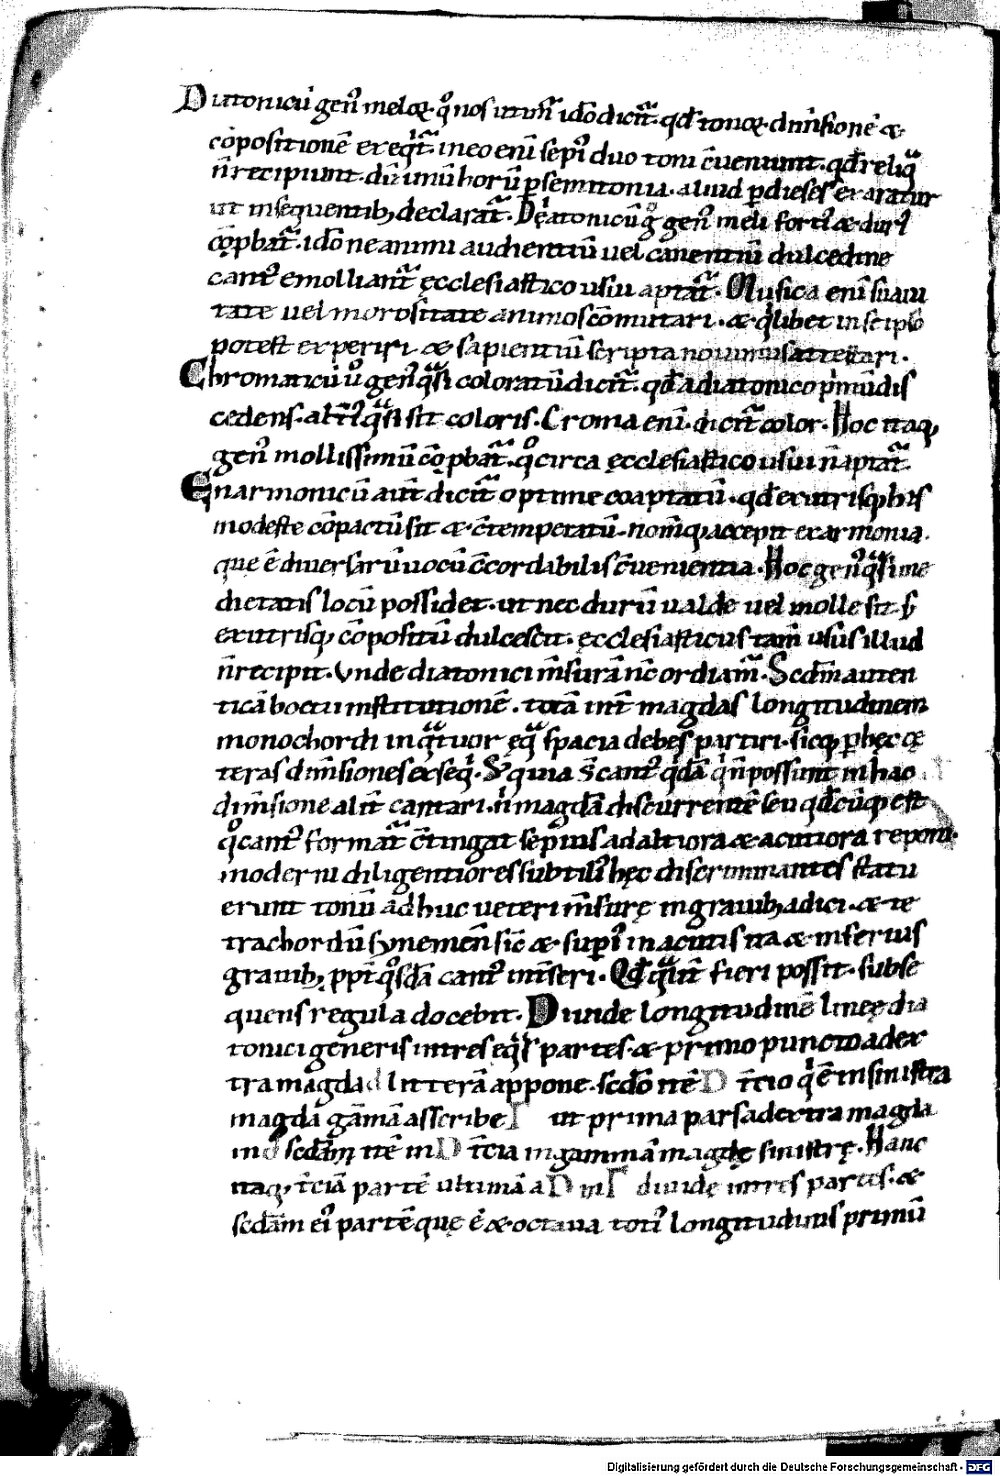 Diatonicū gen᷒ meloꝝ. qͦ nos utimᷓ idō dicitᷓ. qđ tonoꝝ. dimīsionē &
cōpositionē exeqͥtᷓ. in eo enī sepi᷒ duo toni c̄ueniunt. qđ reliqᷓ
n̄ recipiunt. dū unū horū ꝑ semitonia. aliud ꝑ dieses exaratur
ut in sequentibꝫ declaratᷓ. Deatonicū gͦ gen᷒ meli forti᷒ & duri᷒
cōꝓbatᷓ. idō ne animi audientiū uel canentiū dulcedine
cant᷒ emolliantᷓ ęcclesiastico usiu aptatᷓ. Musica enī suaui
tate uel morositate animos cōmutari. & qͥlibet in se ipso
potest experiri & sapientiū scripta nouimus attestari.
Chromaticū u᷒o gen᷒ qᷓsi coloratū dicitᷓ. qđ a diatonico pͥmū dis
cedens. alteri᷒ qᷓsi sit coloris. Croma enī dicitᷓ color. Hoc itaqꝫ
gen᷒ mollissimū cōꝓbatᷓ. qͦ circa ęcclesiastico usui n̄ aptatᷓ.
Enarmonicū aut̄ dicitᷓ optime coaptatū. qđ ex utrisqꝫ his
modeste cōpactū sit & c̄temperatū. nomꝫ qꝫ accepit ex armonia.
que ē diuersarū uocū c̄cordabilis c̄uenientia. Hoc gen᷒ qᷓsi me
dietatis locū possidet. ut nec durū ualde uel molle sit. sꝫ
ex utrisqꝫ cōpositū dulcescit. ęcclesiasticus tam̄ usus illud
n̄ recipit. Vnde diatonici m̄surā nc̄ ordiamᷓ. Scdm̄ auten
ticā boetii institutionē. totā int̄ magdas longitudinem
monochordi in qᷓttuor eqᷓ spacia debes partiri. sicqꝫ ꝑ hęc &
teras dim̄siones exseqͥ. Sꝫ quia s̄ cant᷒ qͥdā qͥ n̄ possunt in hac
dim̄sione alit̄ cantari. nͥ magdā discurrentē seu qđcūqꝫ est
qͦ cant᷒ formatᷓ c̄tingat sepius ad altiora & acutiora reponi.
moderni diligentiores subtili᷒ hęc discriminantes statu
erunt tonū adhuc ueteri m̄surę in grauibꝫ adici. & te
trachordū synemen̄ sic̄ & supi᷒ in acutis ita & inferius
grauibꝫ ꝓpt̄ qͦsdā cant᷒ im̄seri. Qđ qᷓlit̄ fieri possit. subse
quens regula docebit. Diuide longitudinē lineę dia
tonici generis in tres eqᷓs partes. & primo puncto ad ex
tra magda d litterā appone. scd̄o itē D t̄cio qͥ ē in sinistra
magda gāmā asscribe Γ ut prima pars a dextra magda
in d scd̄am itē in D t̄cia in gammā magdę sinistrę. Hanc
itaqꝫ t̄ciā partē ultimā a D in Γ diuide in tres partes. &
scd̄am ei᷒ partē que ē & octaua toti᷒ longitudinis primū
Digitalisierung gefördert durch die Deutsche Forschungsgemeinschaft - DFG